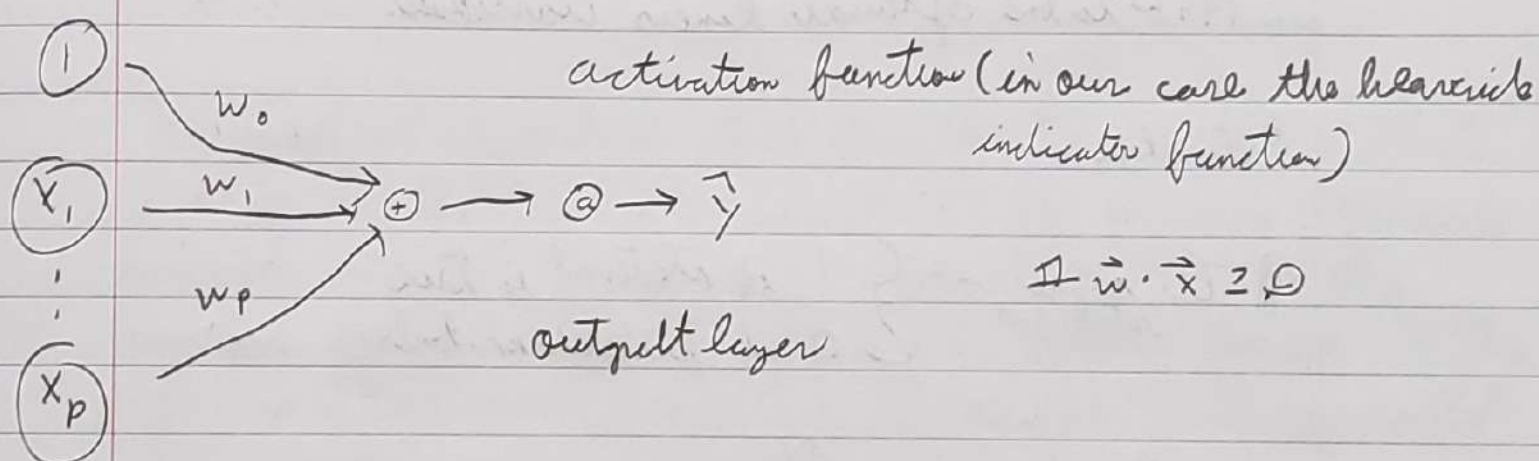 1
w₀
activation function (in our case the heaviside
indicator function)
X₁ w₁ + → a → ŷ
𝟙 w⃗ · x⃗ ≥ 0
⋮ wp
output layer
Xp